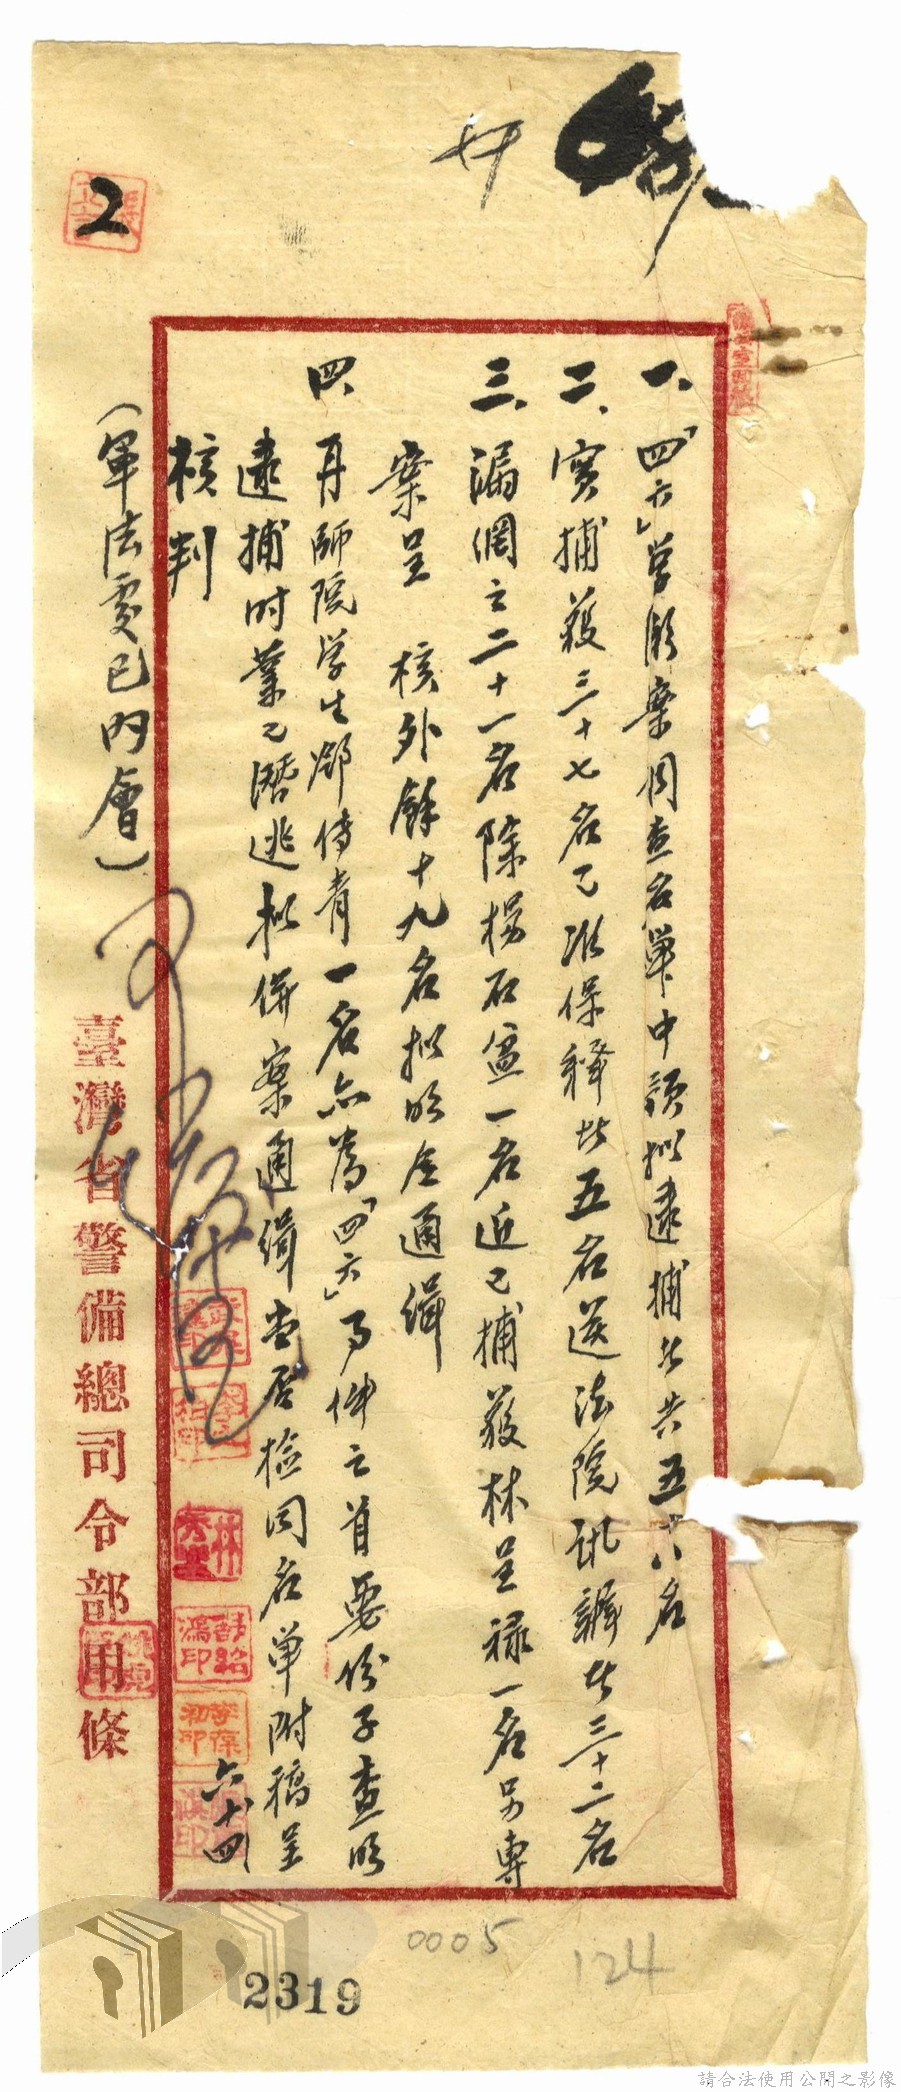 一、「四六」学潮案周查名單中須拟逮捕者共五十八名
二、實捕獲三十七名已准保釋者五名送法院訊辦者三十二名
三、漏網之二十一名除楊石盆一名近已捕獲林呈祿一名另專
案呈 核外餘十九名拟飭令通緝
四、再師院学生鄭傳青一名亦为「四六」事件之首要份子查於
逮捕时業已潛逃拟併案通緝當否檢同名單附稿呈
核判
六十四
(軍法處已内會)
臺灣省警備總司令部用條
2
0005
124
2319
請合法使用公開之影像